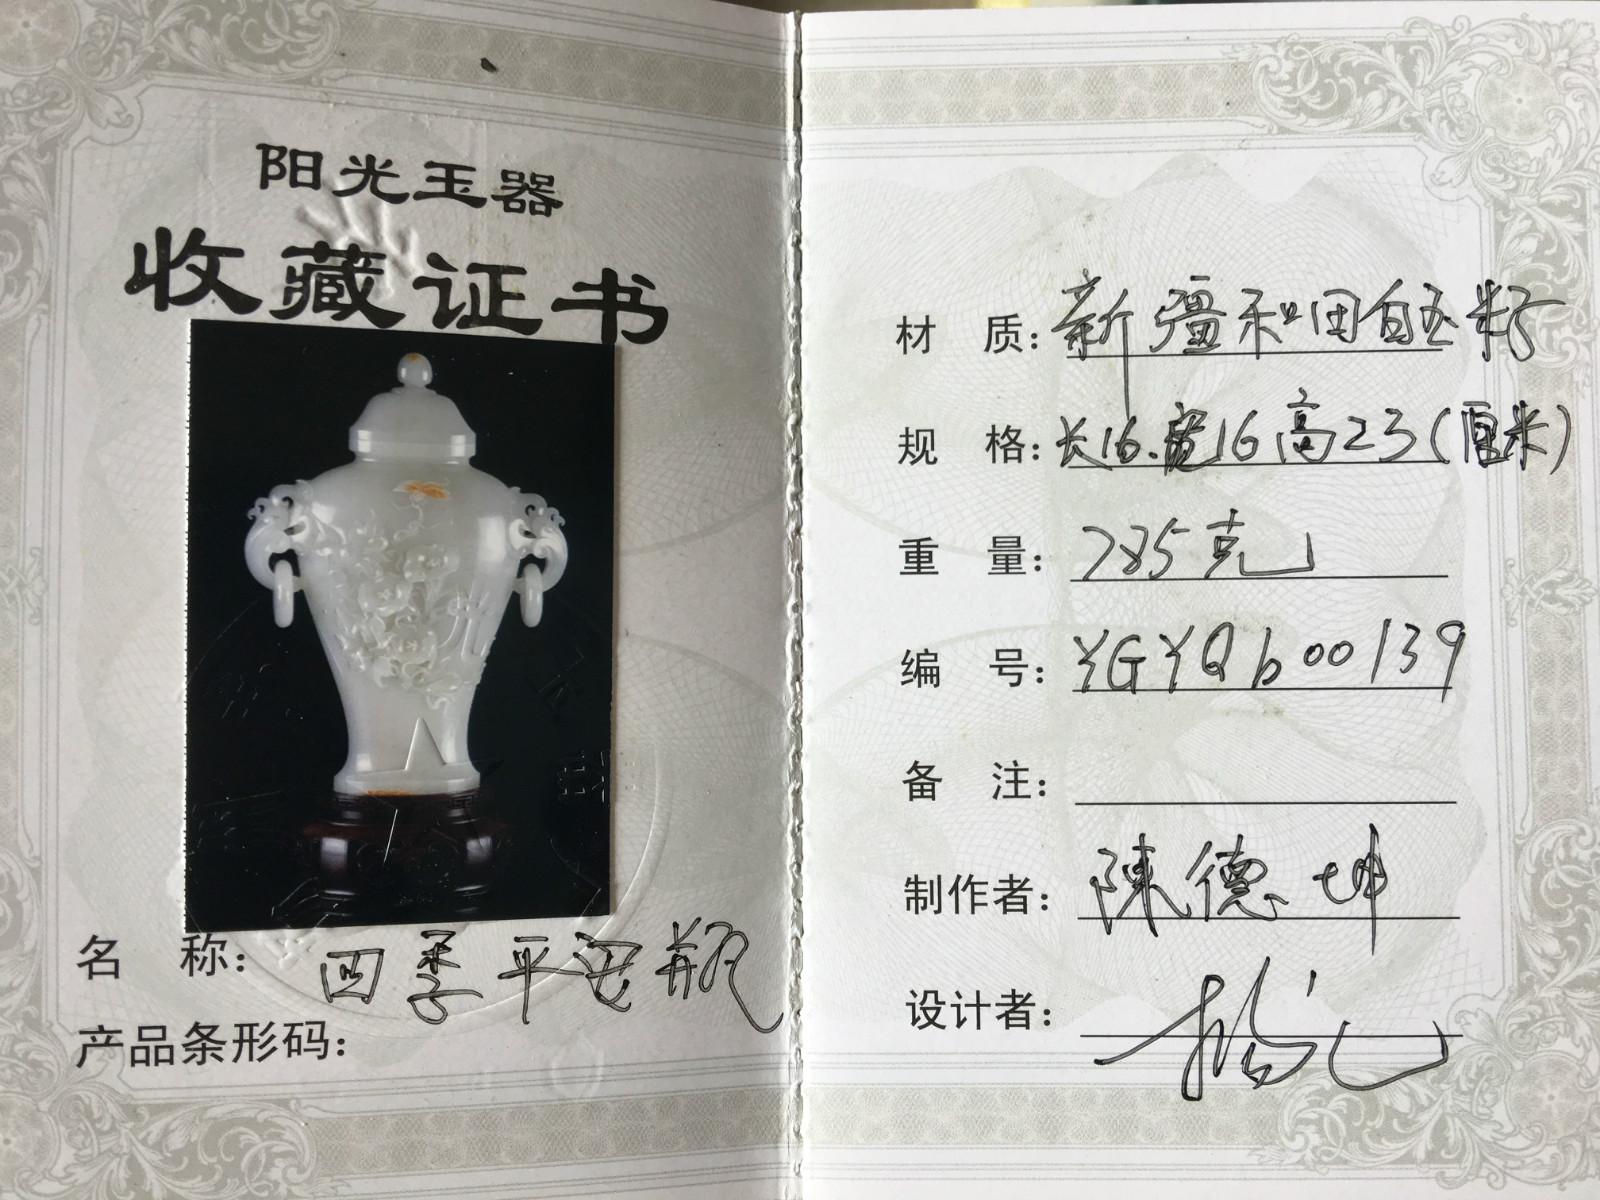 阳光玉器
收藏证书
名 称: 四季平安瓶
产品条形码:
材 质: 新疆和田白玉籽
规 格: 长16.宽16高23(厘米)
重 量: 785克
编 号: YGYQb00139
备 注:
制作者: 陳德坤
设计者: